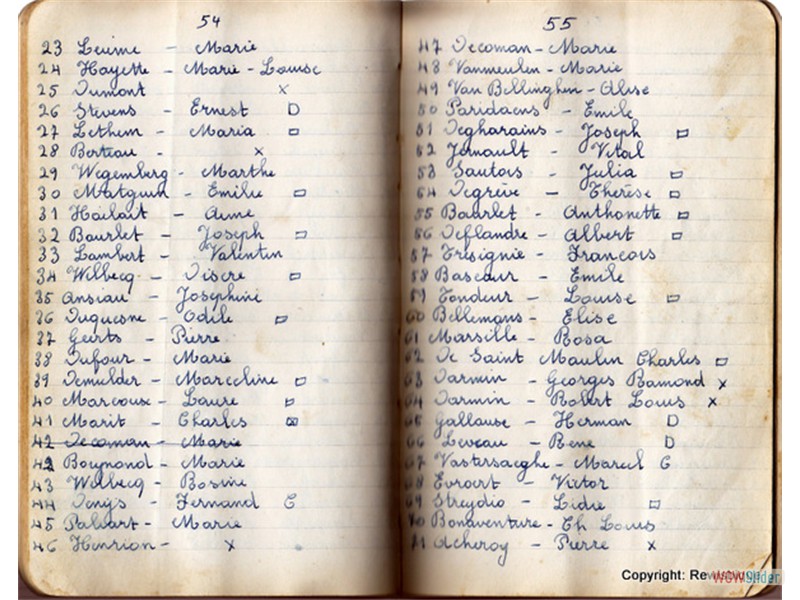 54
23 Leurme - Marie
24 Hayette - Marie-Louise
25 Dumont x
26 Stevens - Ernest D
27 Lethem - Maria ▭
28 Berteau - x
29 Wegemberg - Marthe
30 Matguin - Emilie ▭
31 Haulait - Aimé
32 Baurlet - Joseph ▭
33 Lambert - Valentin
34 Wilbecq - Discre ▭
35 Ansiau - Josephine
36 Duquesne - Odile ▭
37 Geerts - Pierre
38 Dufour - Marie
39 Demulder - Marceline ▭
40 Marcoux - Laure ▭
41 Marit - Charles ☒
42 Decoman - Marie
42 Boeynond - Marie
43 Wilbecq - Rosine
44 Denijs - Fernand C
45 Palsart - Marie
46 Henrion - x
55
47 Decoman - Marie
48 Vanmeulen - Marie
49 Van Bellinghin - Alise
50 Paridaens - Emile
51 Degharains - Joseph ▭
52 Jernault - Vital
53 Sautois - Julia ▭
54 Degrève - Thérèse ▭
55 Baurlet - Anthonette ▭
56 Deflandre - Albert ▭
57 Trésignie - Francois
58 Bascour - Emile
59 Tondeur - Louise ▭
60 Bellemans - Elise
61 Marsille - Rosa
62 De Saint Maulin Charles ▭
63 Darmin - Georges Ramond x
64 Darmin - Robert Louis x
65 Gallause - Herman D
66 Leveau - René D
67 Vastersaeghe - Marcel C
68 Evroert - Victor
69 Streydio - Lidie ▭
70 Bonaventure - Eh Louis
71 Acheroy - Pierre x
Copyright: Re
wowslider